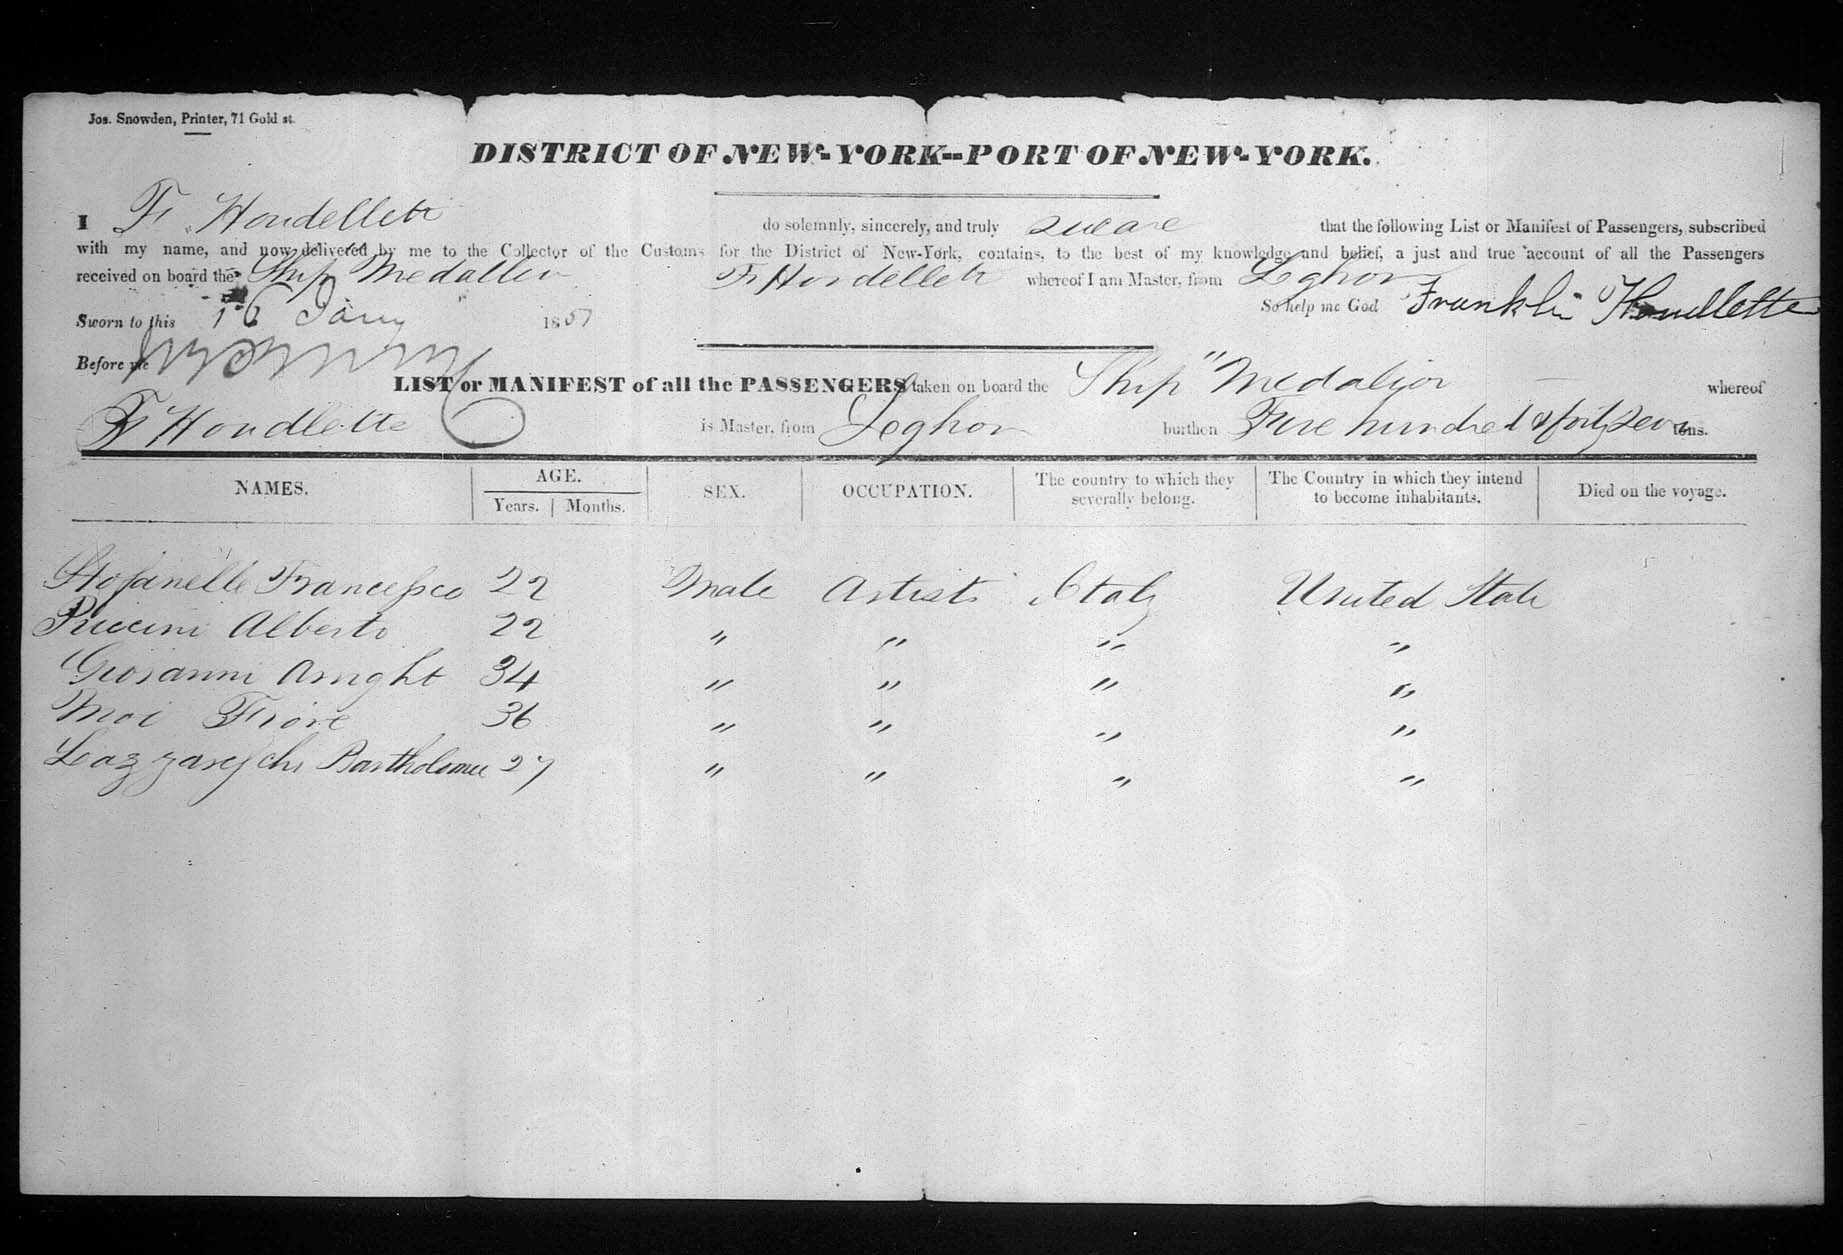 Jos. Snowden, Printer, 71 Gold st.
DISTRICT OF NEW-YORK--PORT OF NEW-YORK.
I F. Houdellett do solemnly, sincerely, and truly swear that the following List or Manifest of Passengers, subscribed
with my name, and now delivered by me to the Collector of the Customs for the District of New-York, contains, to the best of my knowledge and belief, a just and true account of all the Passengers
received on board the Ship Medallion F. Houdellett whereof I am Master, from Leghorn
Sworn to this 16 Jany 1857 So help me God Franklin Houdlette
Before me
LIST or MANIFEST of all the PASSENGERS taken on board the Ship "Medalion whereof
F Houdlette is Master, from Leghorn burthen Five hundred & forty seven tons.
NAMES. AGE. SEX. OCCUPATION. The country to which they severally belong. The Country in which they intend to become inhabitants. Died on the voyage.
Years. Months.
Stofanelle Francessco 22 Male Artist Italy United State
Puccini Alberto 22 " " " "
Giovanni Arright 34 " " " "
Moi Fiore 36 " " " "
Lazzareschi Bartholomee 27 " " " "